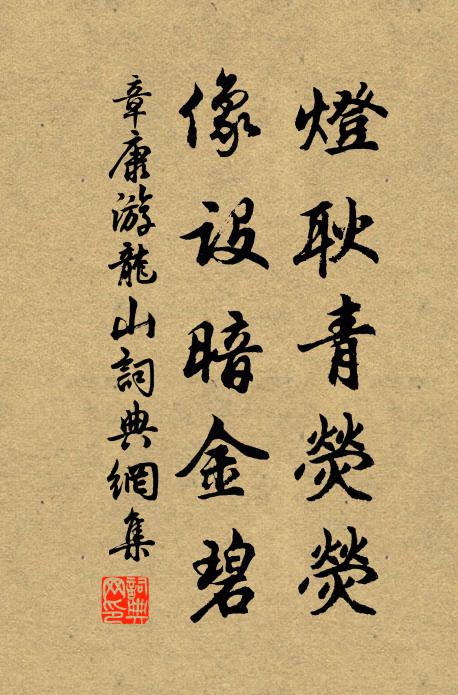 燈耿青熒熒
像設暗金碧
章康游龍山詞典網集
詞典網印